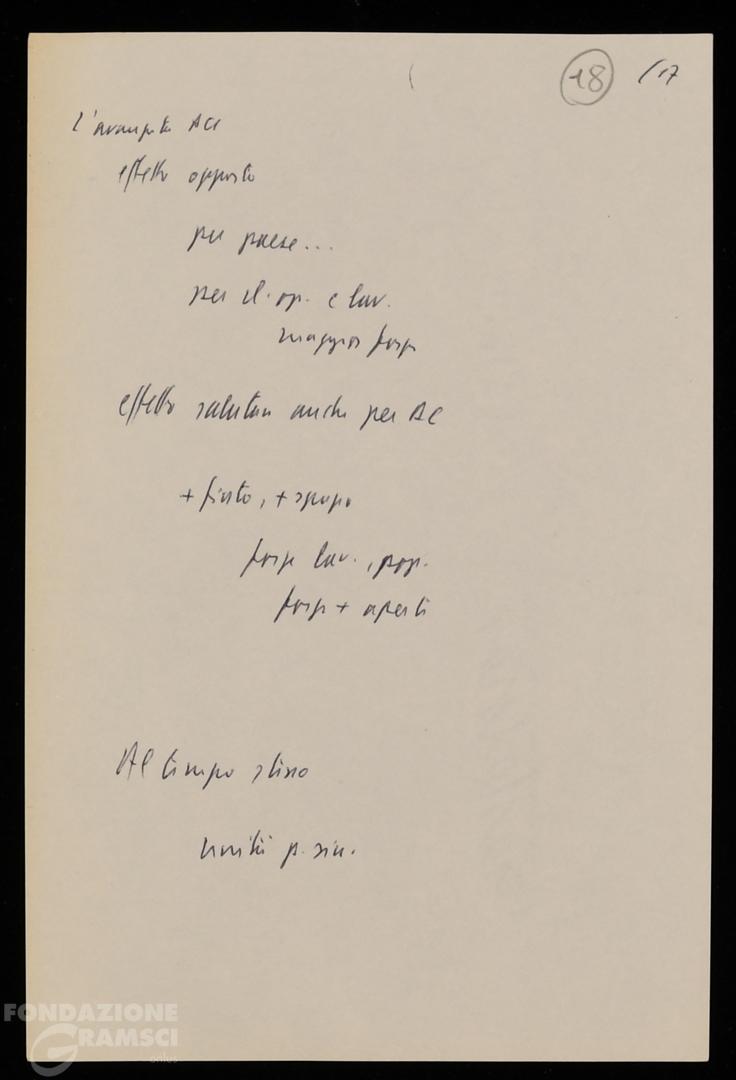 18 /17
L'avanzata PCI
effetto opposto
per paese...
per cl. op. e lav.
maggior forza
effetto salutare anche per DC
+ fiato, + spazio
forze lav., pop.
forze + aperte
Al tempo stesso
unità p. sin.
FONDAZIONE
GRAMSCI
onlus